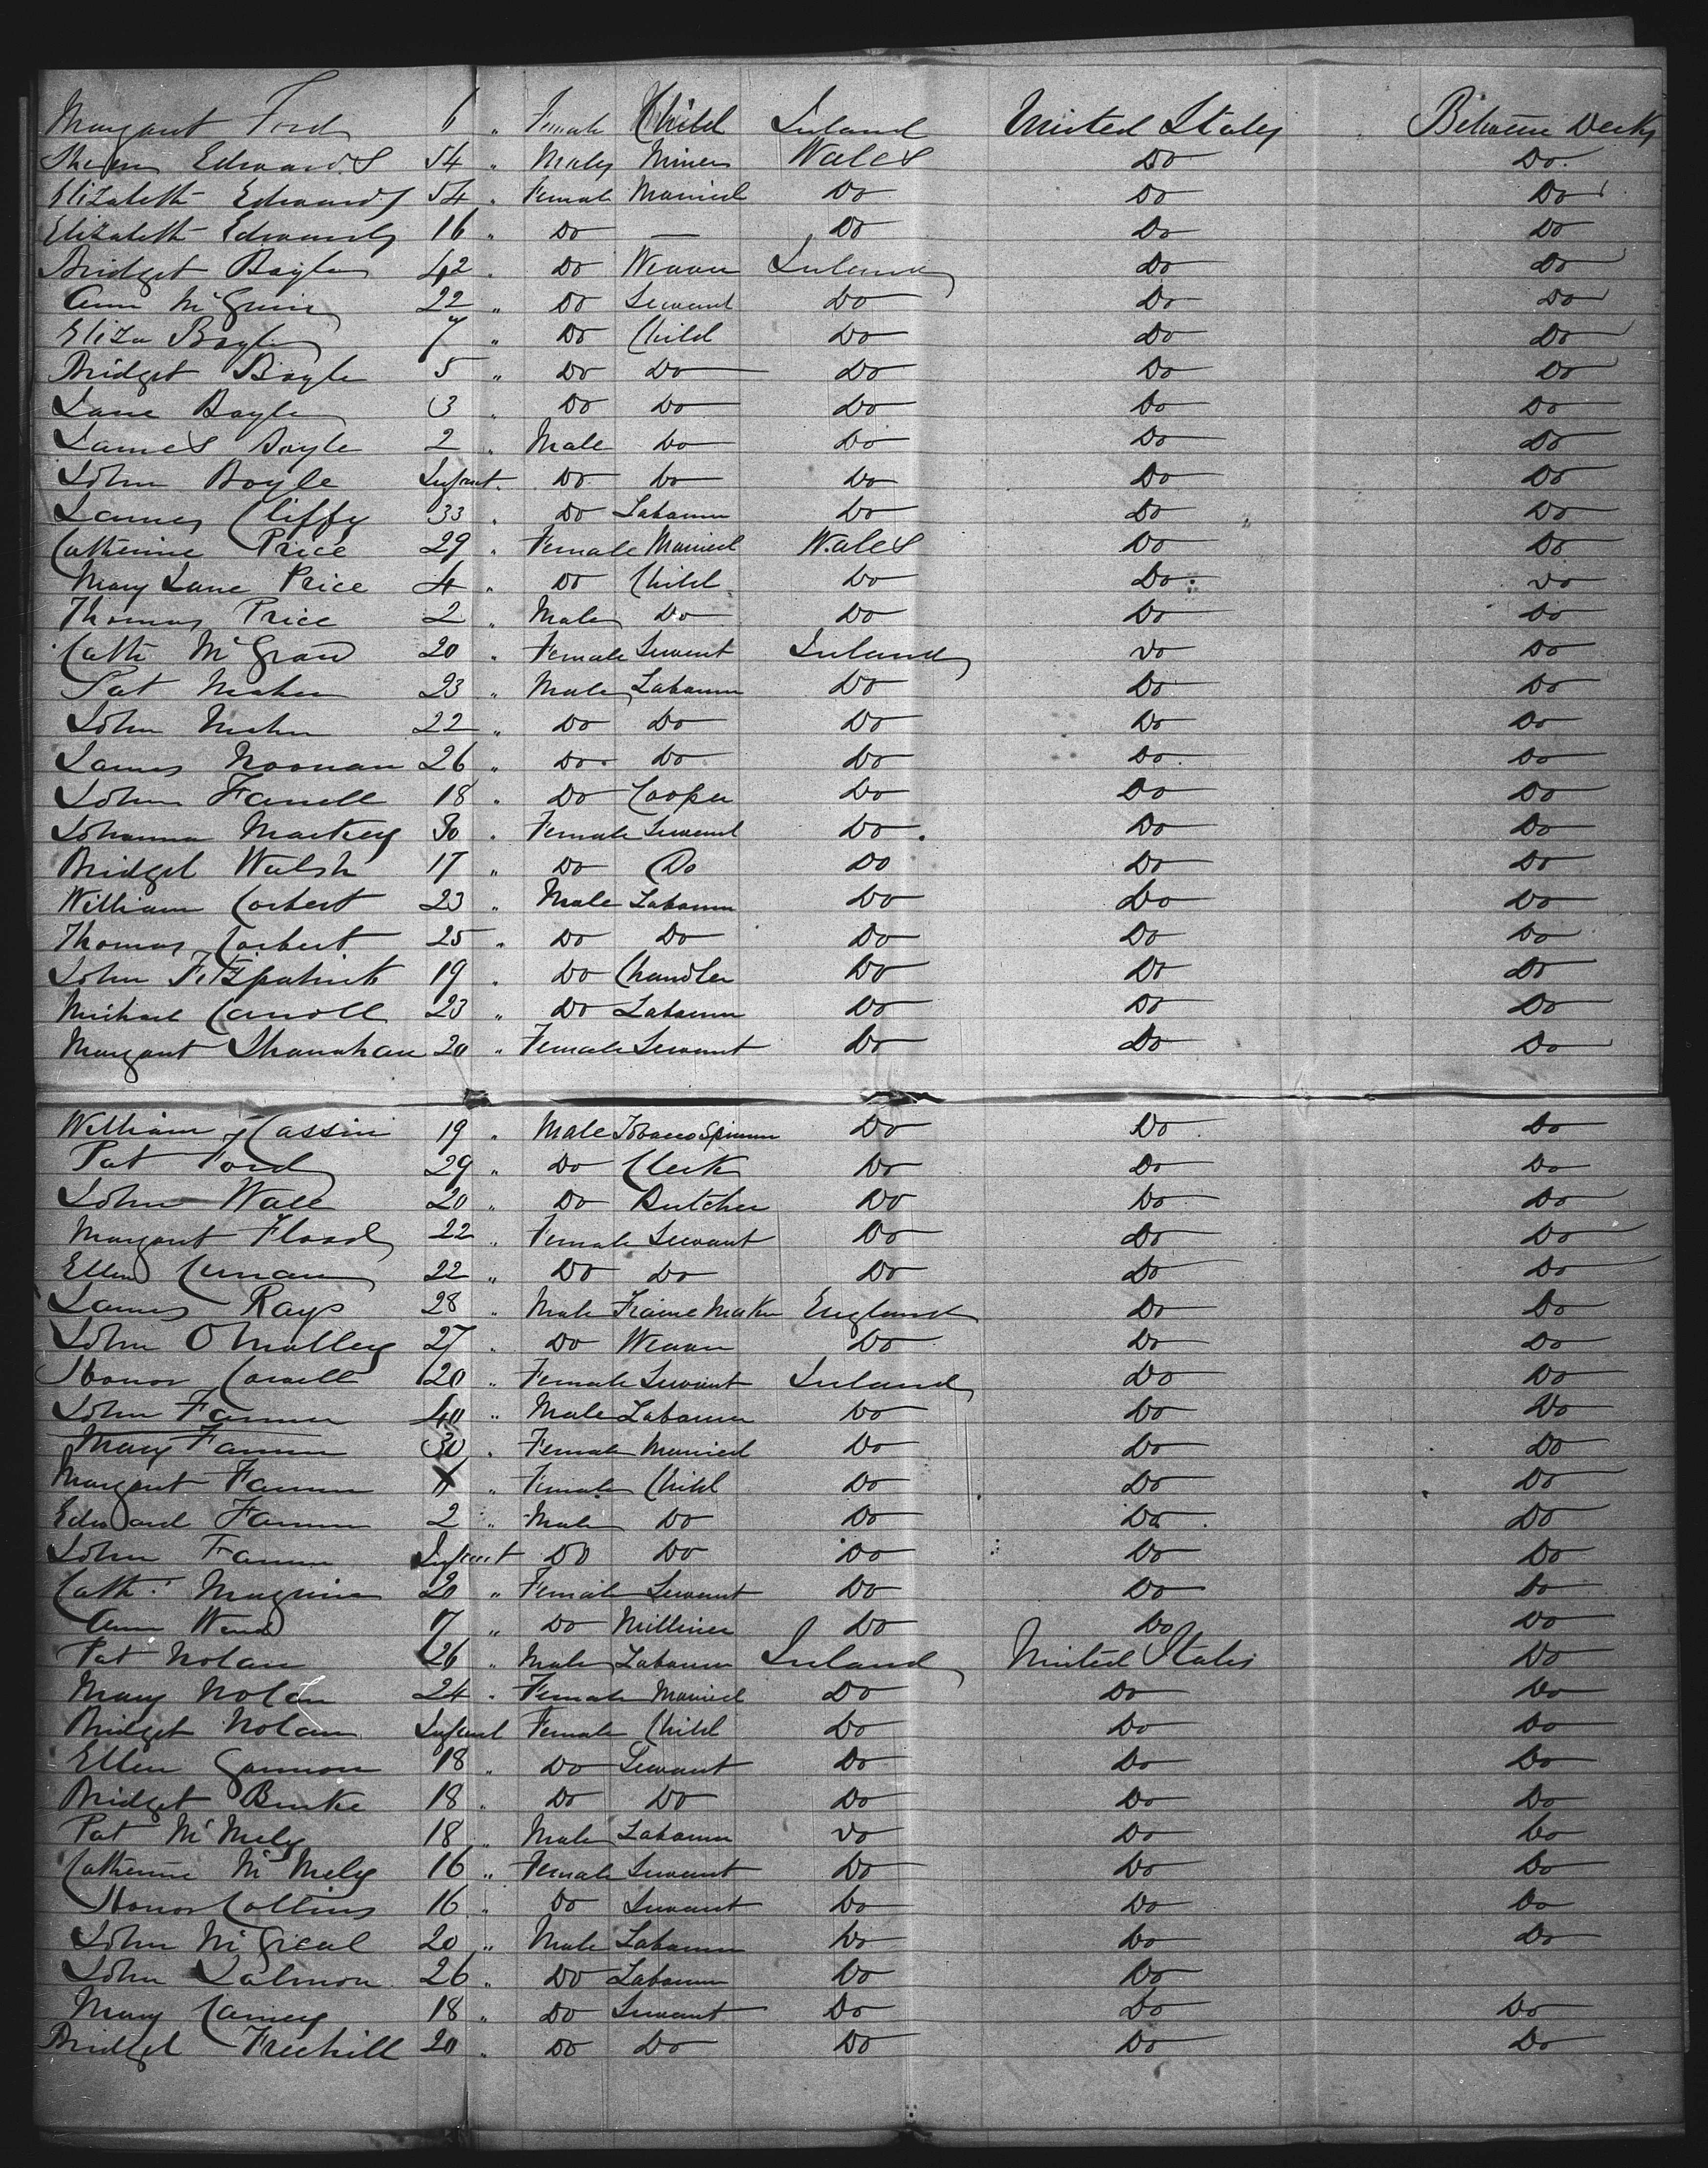 Margaret Ford 6 " Female Child Ireland United States Between Decks
Thomas Edwards 54 " Male Miner Wales Do Do
Elizabeth Edwards 54 " Female Married Do Do Do
Elizabeth Edwards 16 " Do — Do Do Do
Bridget Boyle 42 " Do Weaver Ireland Do Do
Ann McGuire 22 " Do Servant Do Do Do
Eliza Boyle 7 " Do Child Do Do Do
Bridget Boyle 5 " Do Do Do Do Do
Jane Boyle 3 " Do Do Do Do Do
James Boyle 2 " Male Do Do Do Do
John Boyle Infant Do Do Do Do Do
James Cliffy 33 " Do Labourer Do Do Do
Catherine Price 29 " Female Married Wales Do Do
Mary Jane Price 4 " Do Child Do Do Do
Thomas Price 2 " Male Do Do Do Do
Cath McGraw 20 " Female Servant Ireland Do Do
Pat 23 " Male Labourer Do Do Do
John 22 " Do Do Do Do Do
James Noonan 26 " Do Do Do Do Do
John Farrell 18 " Do Cooper Do Do Do
Johanna Markey 30 " Female Servant Do Do Do
Bridget Walsh 17 " Do Do Do Do Do
William Corbert 23 " Male Labourer Do Do Do
Thomas Corbert 25 " Do Do Do Do Do
John Fitzpatrick 19 " Do Chandler Do Do Do
Michael Carroll 23 " Do Labourer Do Do Do
Margaret Shanahan 20 " Female Servant Do Do Do
William Cassin 19 " Male Tobacco Spinner Do Do Do
Pat Ford 29 " Do Clerk Do Do Do
John Wall 20 " Do Butcher Do Do Do
Margaret Flood 22 " Female Servant Do Do Do
Ellen 22 " Do Do Do Do Do
James Rays 28 " Male Frame Maker England Do Do
John O'Malley 27 " Do Weaver Do Do Do
Honor 20 " Female Servant Ireland Do Do
John 40 " Male Labourer Do Do Do
Mary 30 " Female Married Do Do Do
Margaret " Female Child Do Do Do
Edward 2 " Male Do Do Do Do
John Infant Do Do Do Do Do
Cath. Maguire 20 " Female Servant Do Do Do
Ann 17 " Do Milliner Do Do Do
Pat Nolan 26 " Male Labourer Ireland United States Do
Mary Nolan 24 " Female Married Do Do Do
Bridget Nolan Infant Female Child Do Do Do
Ellen Gannon 18 " Do Servant Do Do Do
Bridget Burke 18 " Do Do Do Do Do
Pat McMely 18 " Male Labourer Do Do Do
Catherine McMely 16 " Female Servant Do Do Do
Honor Collins 16 " Do Servant Do Do Do
John 20 " Male Labourer Do Do Do
John Salmon 26 " Do Labourer Do Do
Mary 18 " Do Servant Do Do Do
Bridget Freehill 20 " Do Do Do Do Do